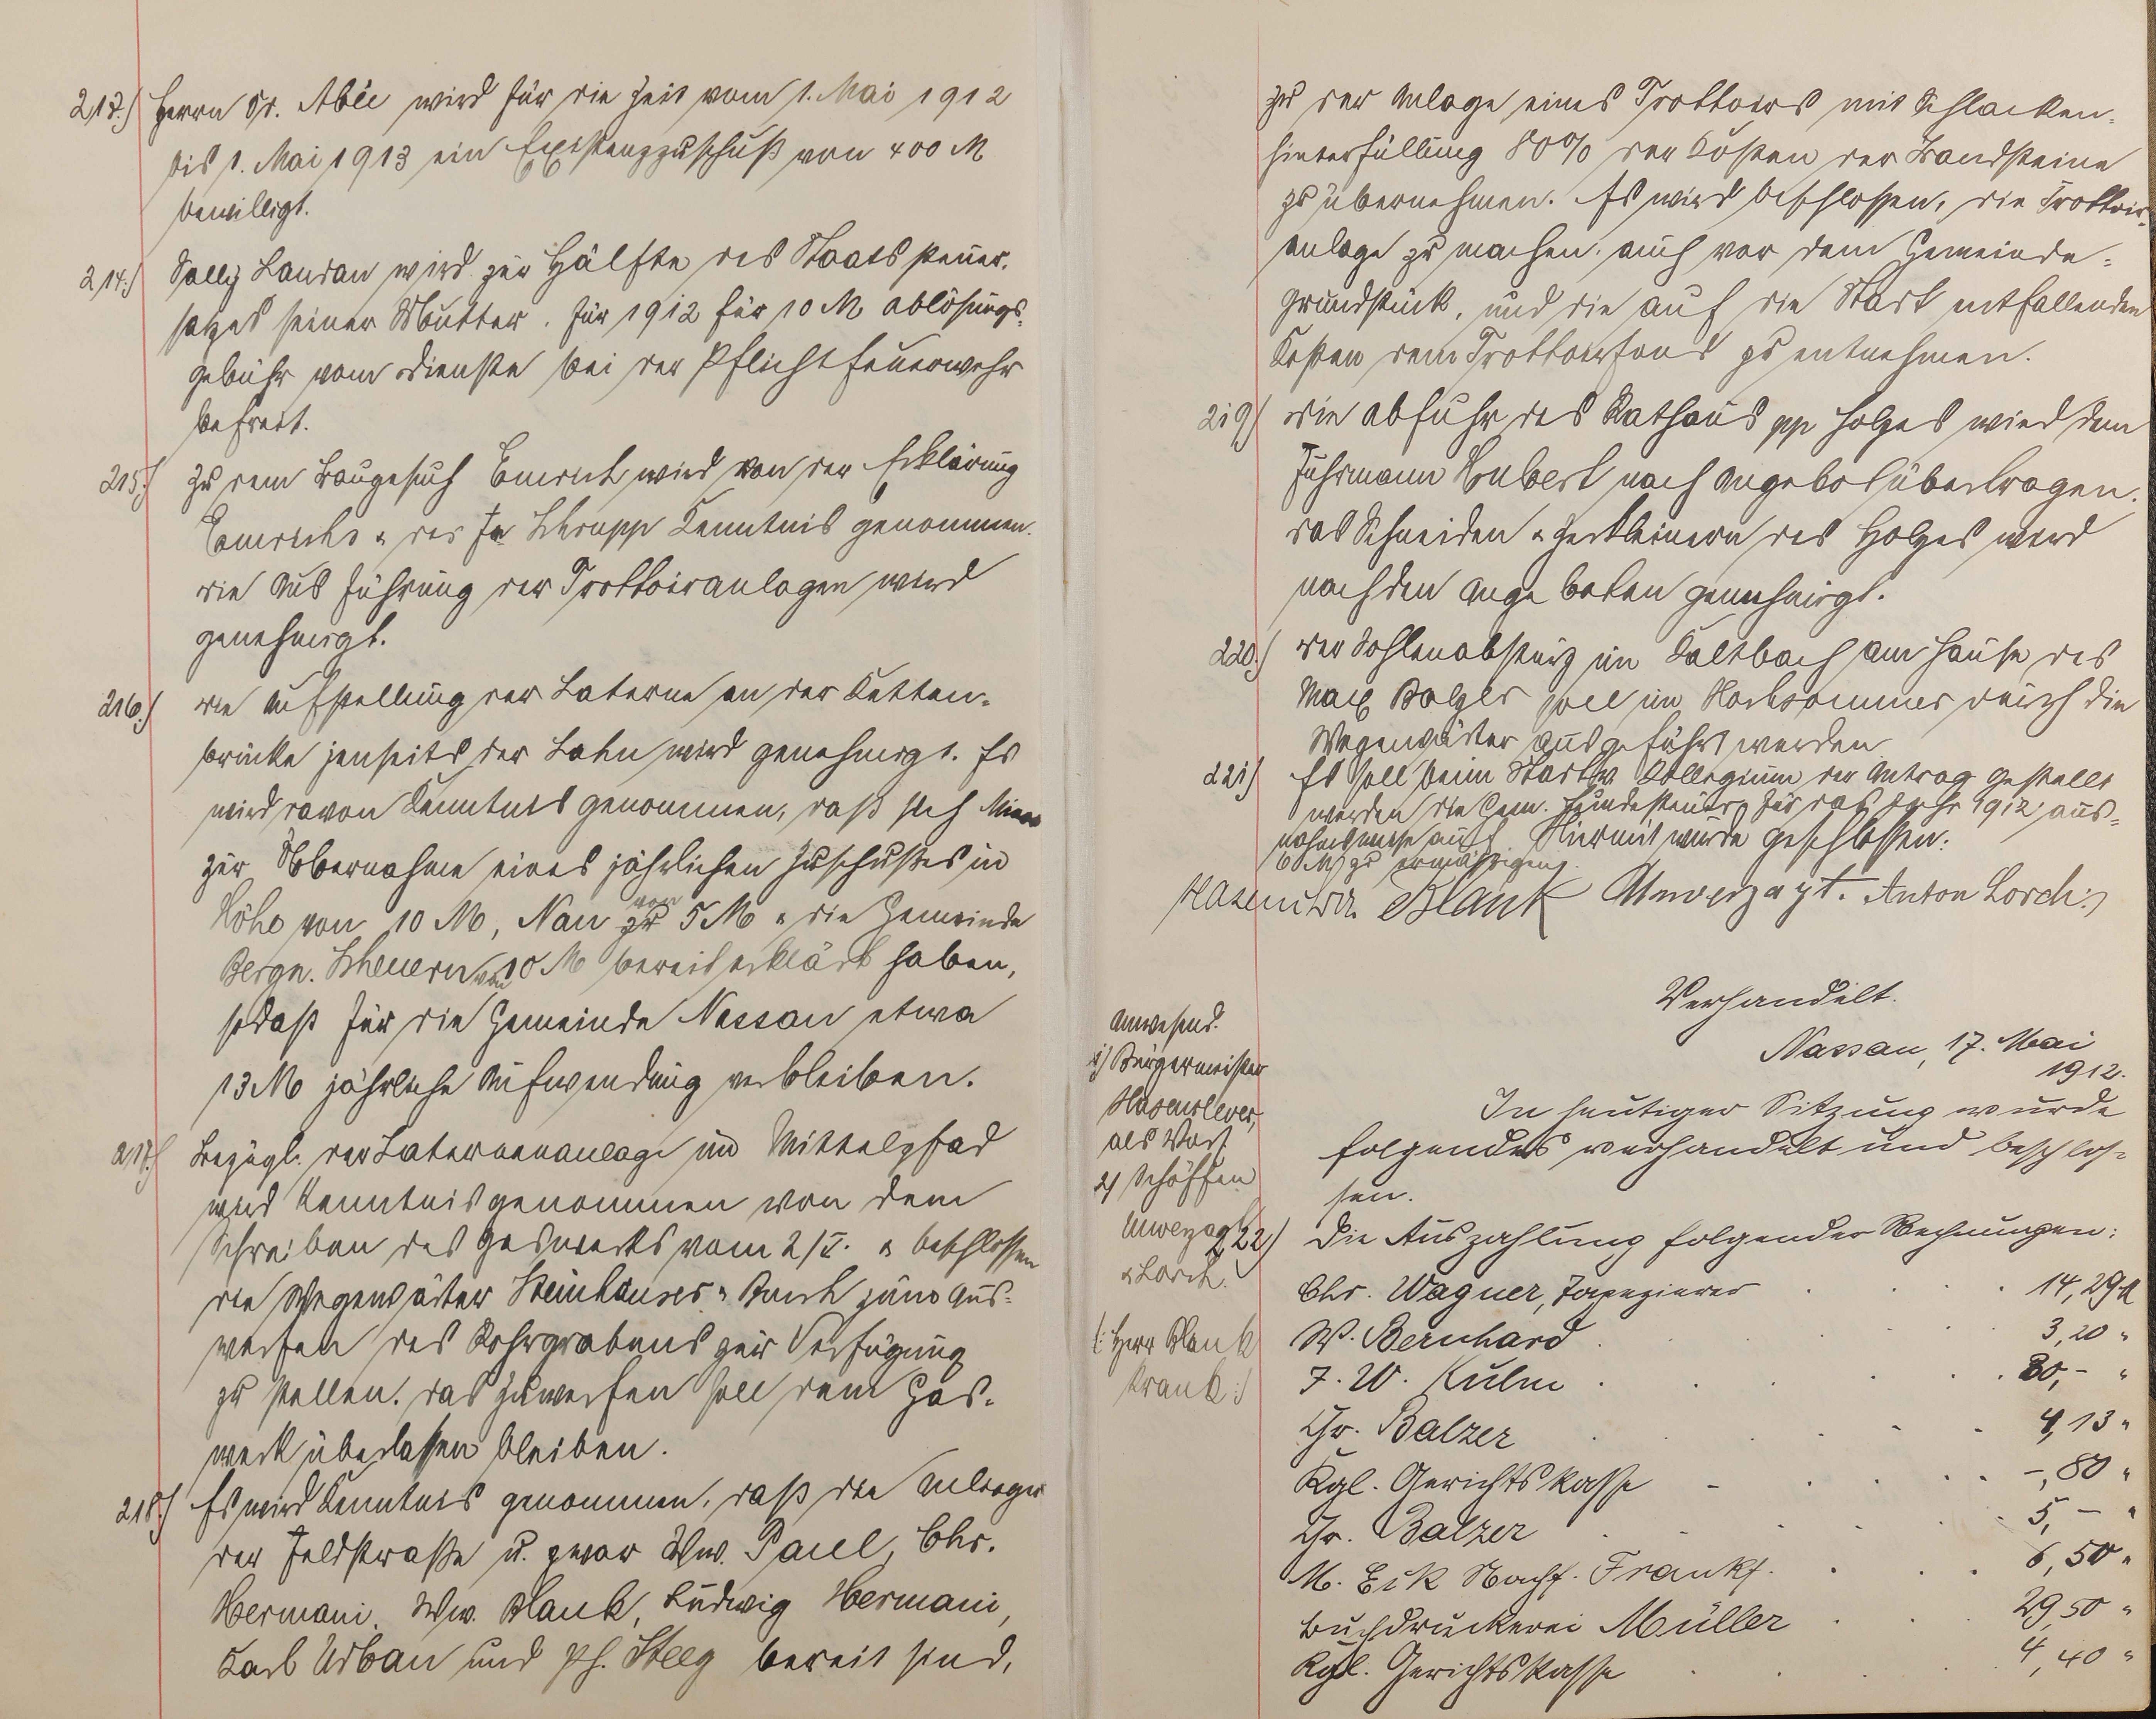 213.) Herrn Dr. Abée wird für die Zeit vom 1. Mai 1912
bis 1. Mai 1913 ein Existenzzuschuß von 400 M
bewilligt.
214.) Sally Landau wird zur Hälfte des Staatssteuer-
satzes seiner Mutter. für 1912 für 10 M Ablösungs-
gebühr vom Dienste bei der Pflichtfeuerwehr
befreit.
215.) Zu dem Baugesuch Emrich wird von der Erklärung
Emrichs & der Fa Schrupp Kenntnis genommen.
die Ausführung der Trottoiranlagen wird
genehmigt.
216.) die Aufstellung der Laterne an der Ketten-
brücke jenseits der Lahn wird genehmigt. Es
wird davon Kenntnis genommen, daß sich
zur Übernahme eines jährlichen Zuschußes in
Höhe von 10 M, Nau von 5 M & die Gemeinde
Bergn. Scheuern von 10 M bereit erklärt haben,
sodaß für die Gemeinde Nassau etwa
13 M jährliche Aufwendung verbleiben.
217.) Bezügl. der Laternenanlage im Mittelpfad
wird Kenntnis genommen von dem
Schreiben des Gaswerks vom 2/V. & beschlossen
die Wegewärter Steinhäuser & Busch zum Aus-
werfen des Rohrgrabens zur Verfügung
zu stellen. das Zuwerfen soll dem Gas-
werk überlassen bleiben.
218.) Es wird Kenntnis genommen, daß die Anlieger
der Feldstraße u. zwar Ww. Paul, Chr.
Hermani, Ww. Blank, Ludwig Hermani,
Karl Urban und Ph. Steeg bereit sind,
zu der Anlage eines Trottoirs mit Schlacken-
hinterfüllung 80% der Kosten der Bandsteine
zu übernehmen. Es wird beschlossen, die Trottoir-
anlage zu machen. auch vor dem Gemeinde-
grundstück, und die auf die Stadt entfallenden
Kosten dem Trottoirfond zu entnehmen.
219) die Abfuhr des Rathaus pp Holzes wird dem
Fuhrmann Hubert nach Angebot übertragen.
das Schneiden & Zerkleinern des Holzes wird
nach den Angeboten genehmigt.
220.) der Sohlenabsturz im Kaltbach am Hause des
Max Balzer soll im Hochsommer durch die
Wegewärter ausgeführt werden
221) Es soll beim Stadtv. Collegium der Antrag gestellt
werden die Gem. Hundesteuer für das Jahr 1912 aus-
nahmsweise auf Hiermit wurde geschlossen.
6 M zu ermäßigen.
Hasenclever. Blank Unverzagt. Anton Lorch.
Verhandelt.
Nassau, 17. Mai
1912.
Anwesend.
1) Bürgermeister
Hasenclever,
als Vors.
2) Schöffen
Unverzagt
& Lorch.
(: Herr Blank
krank :)
In heutiger Sitzung wurde
folgendes verhandelt und beschlos-
sen.
222) Die Auszahlung folgender Rechnungen:
Chr. Wagner, Tapezierer . . . 14,29 M
W. Bernhard . . . 3,20 "
J. W. Kulm . . . . 80,- "
Chr. Balzer . . . 4,13 "
Kgl. Gerichtskasse - . . . -,80 "
Chr. Balzer . . . . 5,- "
M. Eck Nachf. Frankf. . . . 6,50 "
Buchdruckerei Müller . . . 29,50 "
Kgl. Gerichtskasse . . . 4,40 "